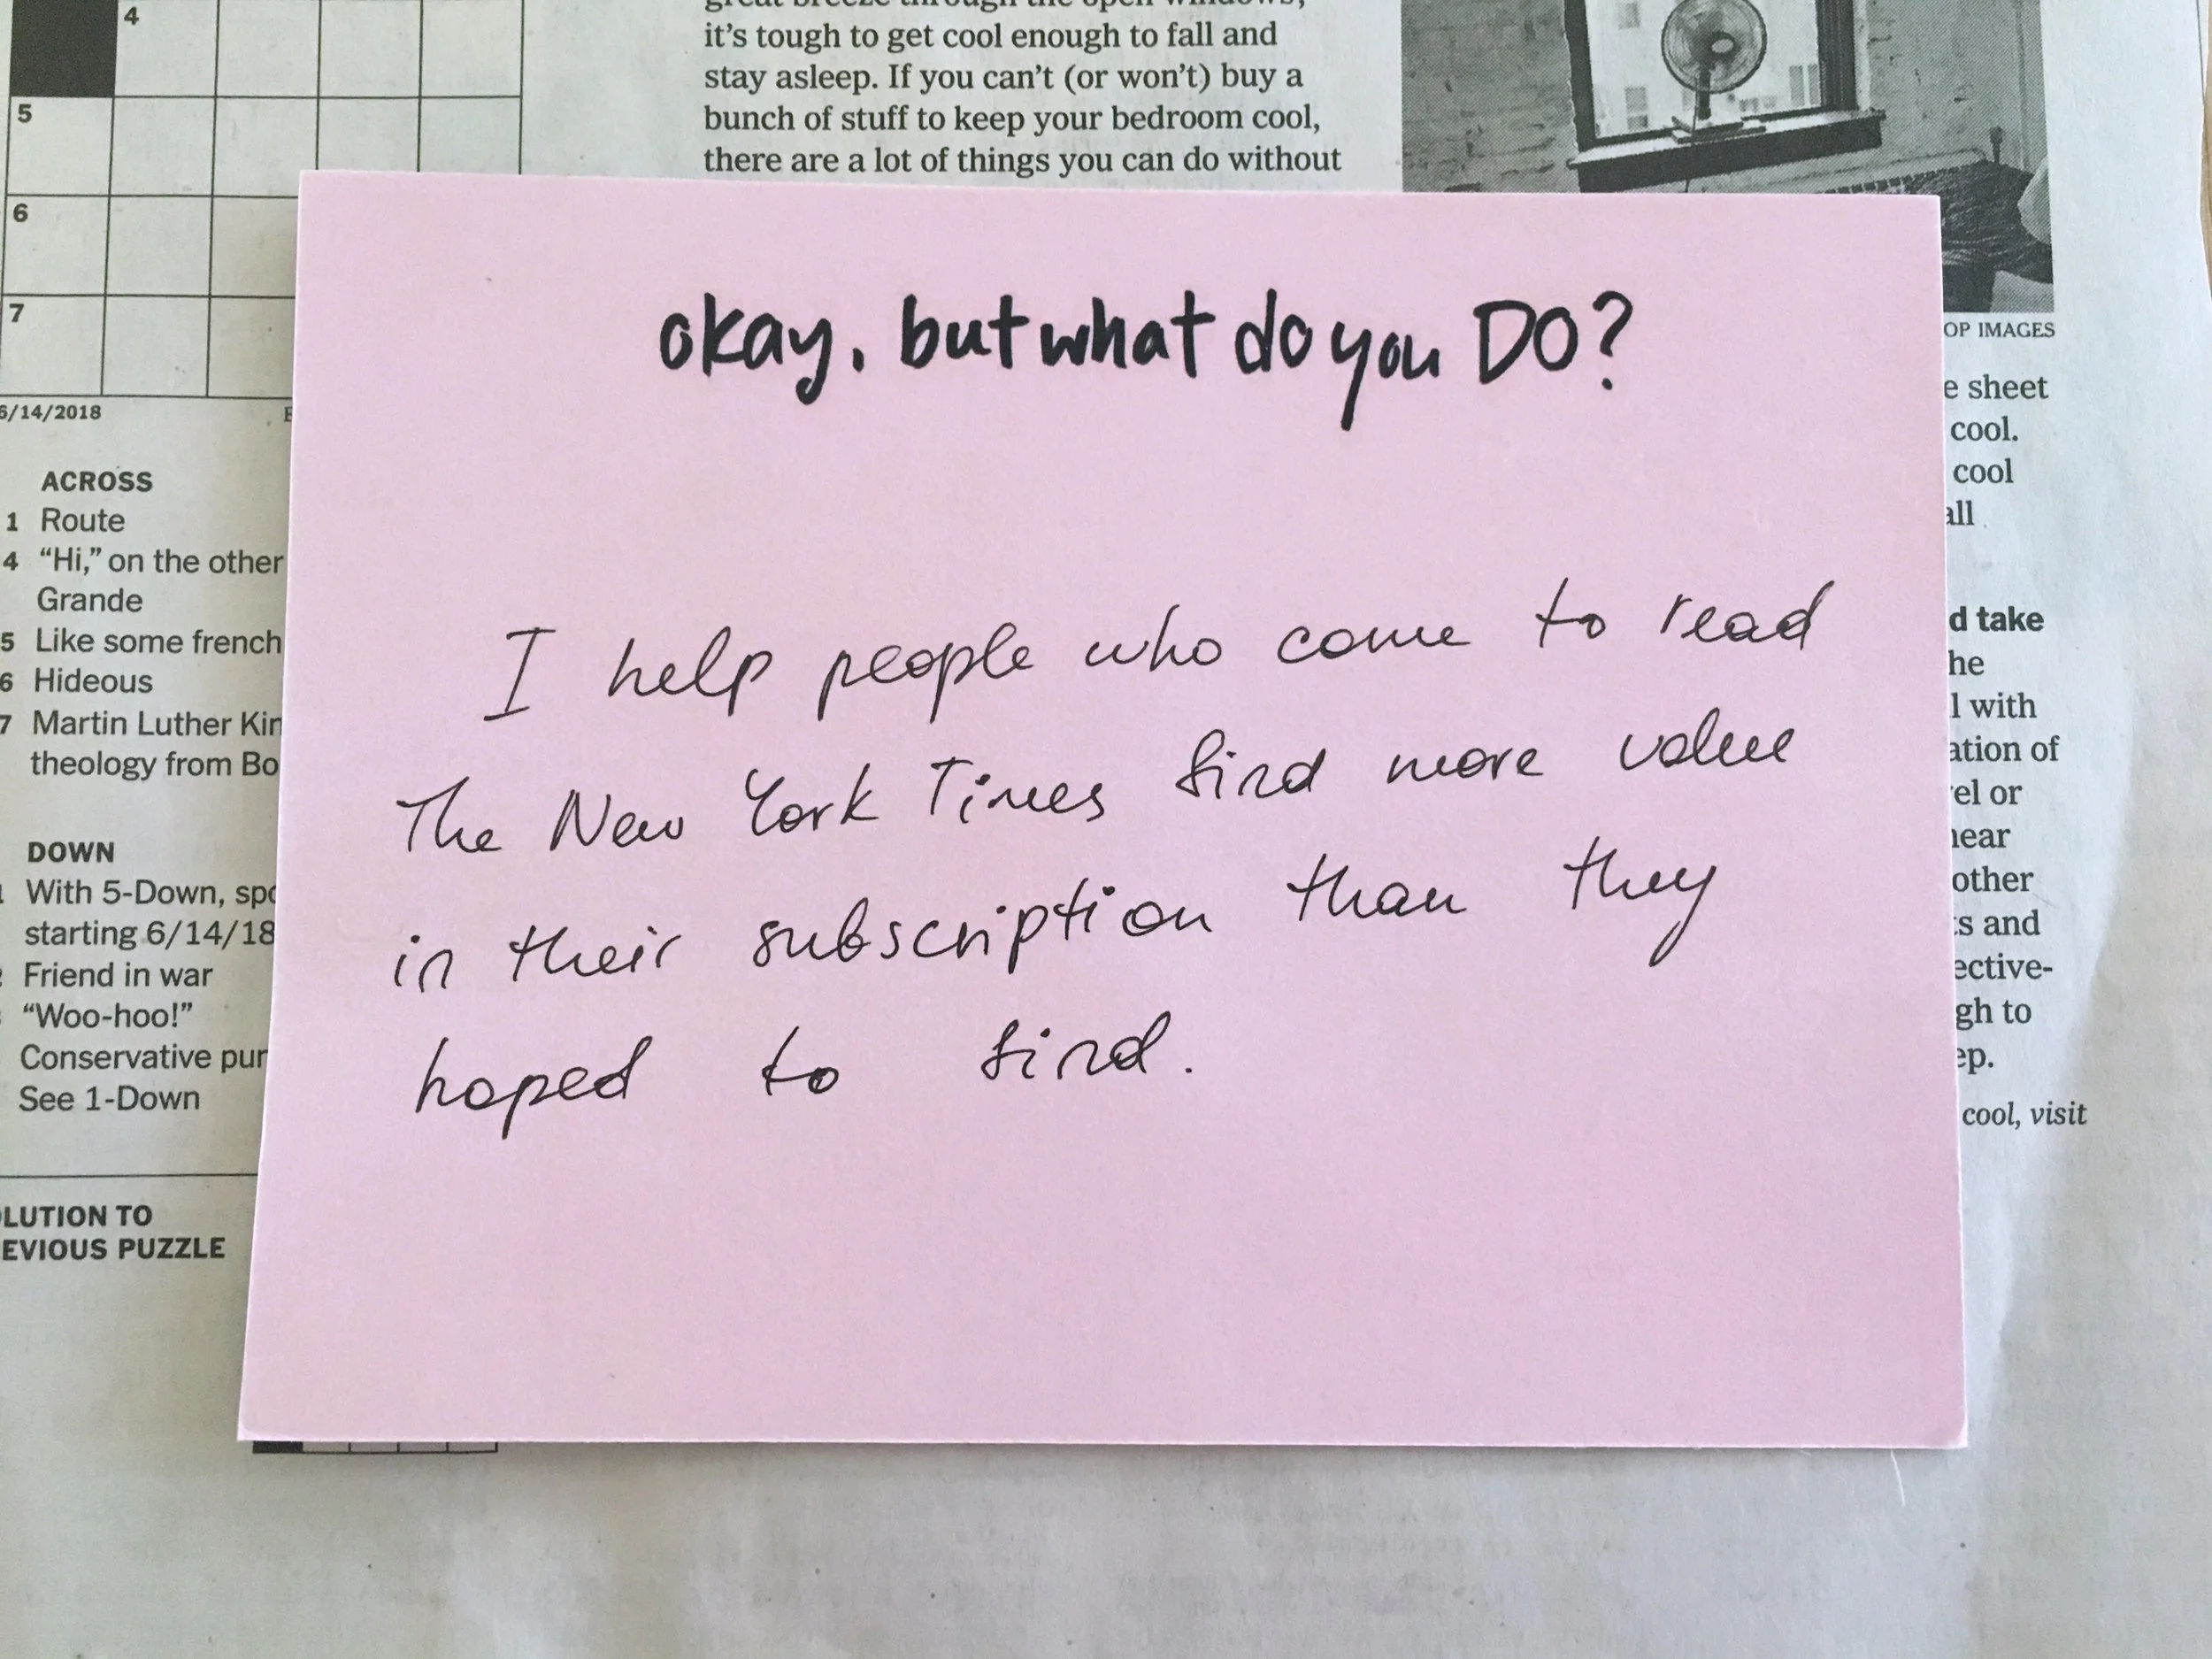 4
it's tough to get cool enough to fall and
stay asleep. If you can't (or won't) buy a
bunch of stuff to keep your bedroom cool,
there are a lot of things you can do without
5
6
7
6/14/2018
ACROSS
1 Route
4 “Hi,” on the other
Grande
5 Like some french
6 Hideous
7 Martin Luther
theology from
DOWN
With 5-Down,
starting 6/14/18
Friend in war
“Woo-hoo!”
Conservative
See 1-Down
PUZZLE
okay, but what do you DO?
I help people who come to read
The New York Times find more value
in their subscription than they
hoped to find.
IMAGES
sheet
cool.
cool
take
with
of
or
other
and
to
cool, visit